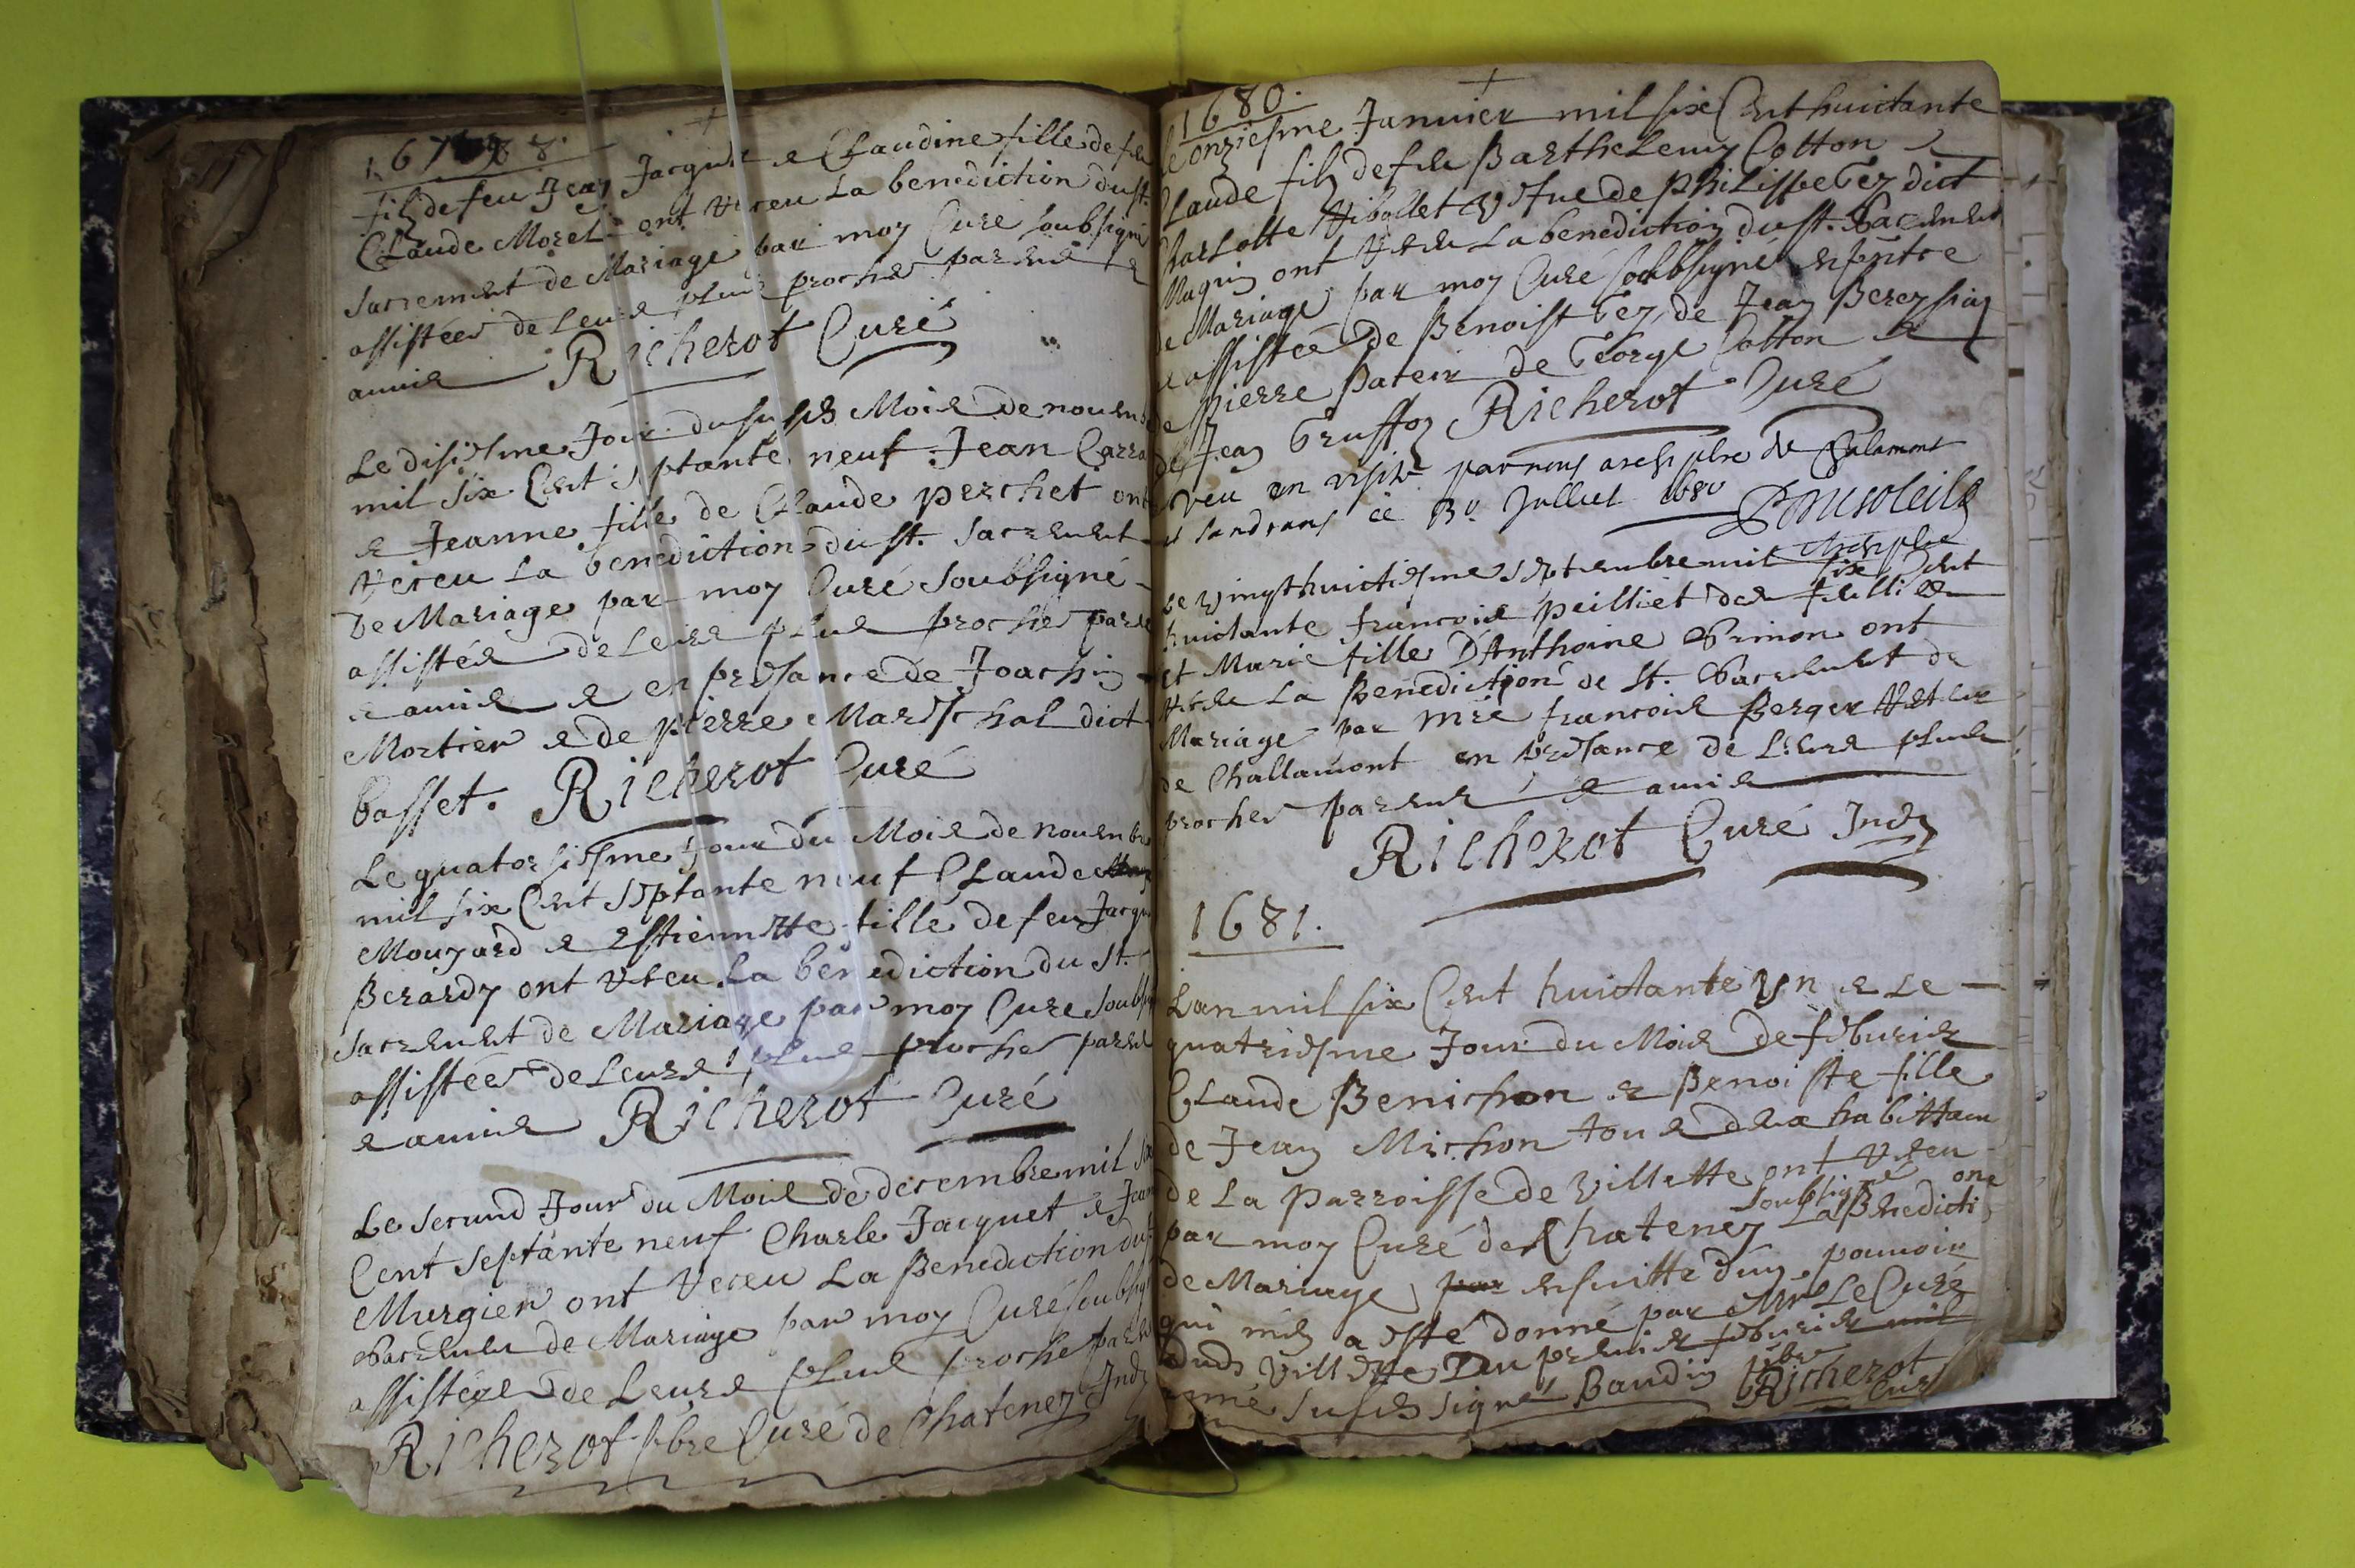 filz de feu Jean Jacquet & Claudine fille de feu
Claude Morel ont receu La benediction du st.
Sacrement de Mariage par moy Curé soubsigné
assistées de Leurs plus proches parens &
amis Richerot Curé
Le disiesme Jour du susd. Mois de nouemb
mil six Cent septante neuf Jean Carra
& Jeanne fille de Claude perchet ont
receu La benediction du st. Sacrement
De Mariage par moy Curé Soubsigné
assistés de Leurs plus proches paren
& amis & en presance de Joachin
Mortier & de pierre Mareschal dict
basset. Richerot Curé
Le quatorsiesme Jour du Mois de nouembre
mil six Cent septante neuf Claude
Mouyard & Estiennette fille de feu Jacqu
Berardy ont receu La benediction du st.
Sacrement de Mariage par moy Curé soubsi
assistées de Leurs plus proches paren
& amis Richerot Curé
Le second Jour du Mois de decembre mil six
Cent septante neuf Charle Jacquet & Jean
Murgier ont receu La Benediction du st
Sacrement de Mariage par moy Curé soubsig
assistées de Leurs plus proche paren
Richerot pbre Curé de Chatenez Ind
1680.
le onziesme Januier mil six Cent huictante
Claude filz de feu Barthelemy Cotton &
Charlotte Ribollet vefue de philippe Gey dict
Maguin ont receu La benediction du st. Sacrement
de Mariage par moy Curé soubsigné en pntce
& assistée de Benoist Gey, de Jean Bereysiat
de pierre pater de George Cotton &
de Jean Gruffoz Richerot Curé
veu en visite par nous archiptre de Chalamont
et Sandrans ce 13e Juillet 1680
archiptre
Le vingthuictiesme septembre mil six Cent
huictante francois peilliet des feuilles
et Marie fille D'Anthoine Grimon ont
receu La Benediction de st. Sacrement de
Mariage par mre francois Berger
de Challamont en presance de Leurs plus
proches parens & amis
Richerot Curé Ind
1681.
Lan mil six Cent huictante vn & Le
quatriesme Jour du Mois de feburier
Claude Benichon & Benoiste fille
de Jean Michon tous deux habittans
de La parroisse de villette ont receu
soubsigné
par moy Curé de Chatenez La Benedicti one
de Mariage par ensuitte d'un pouuoir
qui m'es a esté donné par Mr Le Curé
dud. villette Du premier feburier mil
année susd. signé Baudin pbre
Richerot Curé